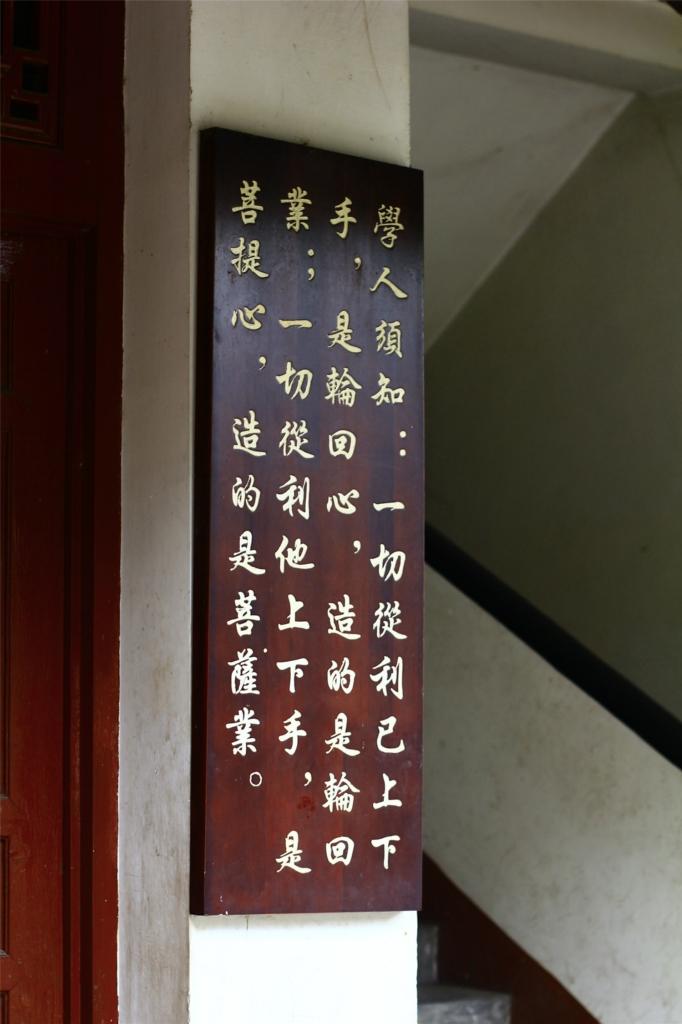 學人須知：一切從利已上下
手，是輪回心，造的是輪回
業；一切從利他上下手，是
菩提心，造的是菩薩業。